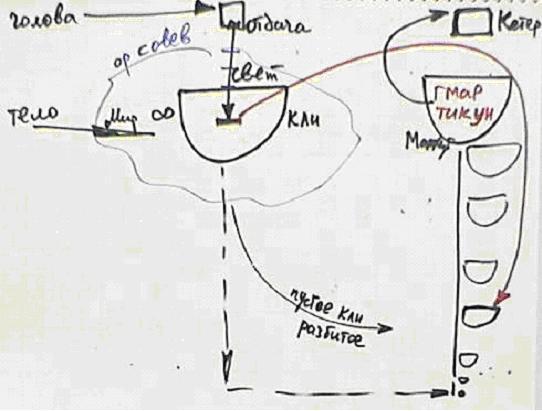 голова
отдача
Кетер
ор совев
свет
гмар
тикун
тело
Мир ∞
кли
пустое кли
разбитое